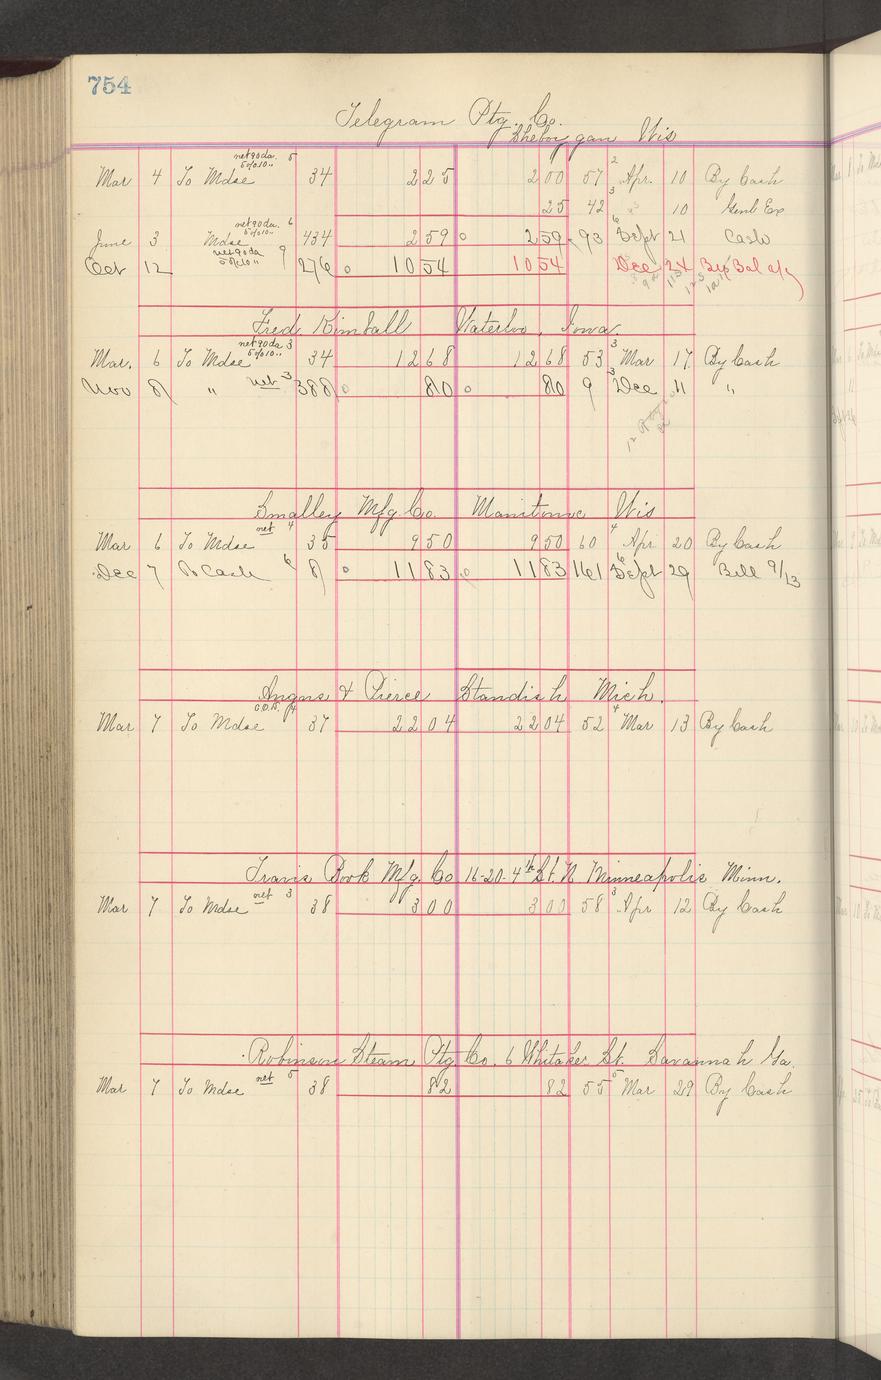 754
Telegram Ptg. Co.
Sheboygan Wis
net 90 da. 5
5%10 "
Mar 4 To Mdse 34 225 200 57 2 Apr. 10 By Cash
25 42 3 10 Genl Exp
net 90 da. 6
5%10 "
June 3 Mdse 434 259 259 93 6 Sept 21 Cash
net 90 da 9
5%10 "
Oct 12 276 1054 1054 Dec 24 By Bal a/c
Fred Kimball Waterloo, Iowa.
net 90 da 3
5%10 "
Mar. 6 To Mdse 34 1268 1268 53 3 Mar 17 By Cash
Nov 8 " net 3 388 80 80 9 3 Dec 11 "
Smalley Mfg. Co. Manitowoc Wis
net 4
Mar 6 To Mdse 35 950 950 60 4 Apr 20 By Cash
Dec 7 To Cash 6 8 1183 1183 161 6 Sept 29 Bill 9/13
Angus & Pierce Standish Mich.
C.O.D. 4
Mar 7 To Mdse 37 2204 2204 52 4 Mar 13 By Cash
Travis Book Mfg. Co 16-20-4th St. N Minneapolis Minn.
net 3
Mar 7 To Mdse 38 300 300 58 3 Apr 12 By Cash
Robinson Steam Ptg. Co. 6 Whitaker St. Savannah Ga.
net 5
Mar 7 To Mdse 38 82 82 55 5 Mar 29 By Cash